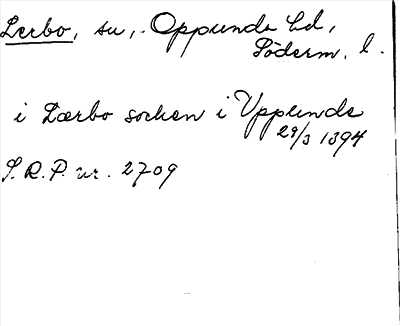 Lerbo, sn, Oppunda hd,
Söderm. l.
i Lærbo sochen i Vpplunda
29/3 1394
S. R. P. nr. 2709